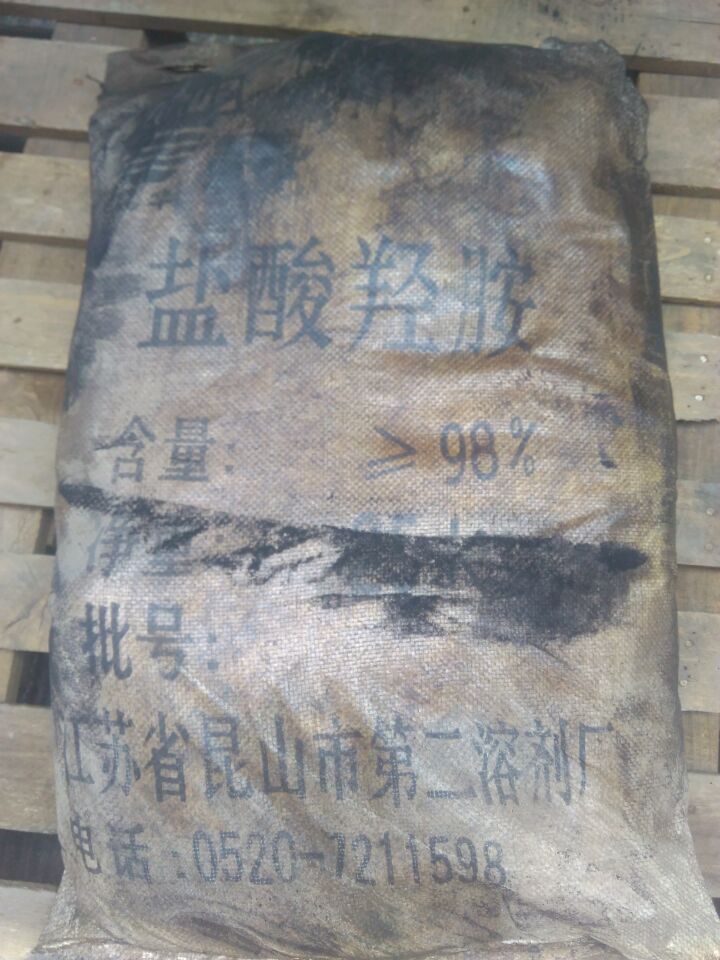 盐酸羟胺
含量: ≥98%
净重:
批号:
江苏省昆山市第二溶剂厂
电话:0520-7211598